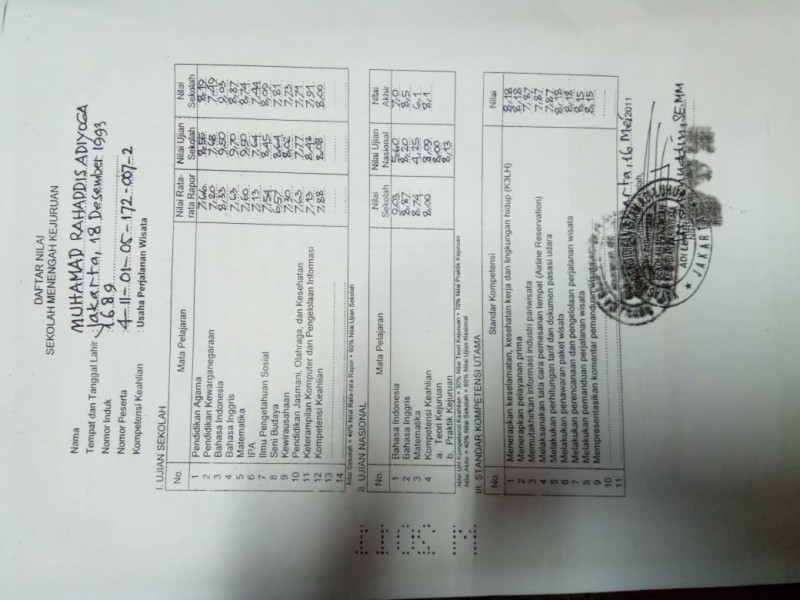 DAFTAR NILAI
SEKOLAH MENENGAH KEJURUAN
Nama MUHAMAD RAHADDIS ADIYOGA
Tempat dan Tanggal Lahir : Jakarta, 18 Desember 1993
Nomor Induk 1689
Nomor Peserta 4-11-01-05-172-007-2
Kompetensi Keahlian : Usaha Perjalanan Wisata
I. UJIAN SEKOLAH
No. Mata Pelajaran Nilai Rata-rata Rapor Nilai Ujian Sekolah Nilai Sekolah
1 Pendidikan Agama 7,66
2 Pendidikan Kewarganegaraan 7,20 7,68 7,49
3 Bahasa Indonesia 8,33 9,50 9,03
4 Bahasa Inggris 7,63 9,70 8,87
5 Matematika 7,60 9,50 8,74
6 IPA 7,13 7,64 7,44
7 Ilmu Pengetahuan Sosial 7,54 8,45 8,09
8 Seni Budaya 6,57 8,64 7,81
9 Kewirausahaan 7,30 8,02 7,73
10 Pendidikan Jasmani, Olahraga, dan Kesehatan 7,63 7,77 7,71
11 Keterampilan Komputer dan Pengelolaan Informasi 7,13 8,43 7,91
12 Kompetensi Keahlian 7,88 8,08 8,00
13
14
Nilai Sekolah = 40% Nilai Rata-rata Rapor + 60% Nilai Ujian Sekolah
II. UJIAN NASIONAL
No. Mata Pelajaran Nilai Sekolah Nilai Ujian Nasional Nilai Akhir
1 Bahasa Indonesia 9,03 5,60 7,0
2 Bahasa Inggris 8,87 8,20 8,5
3 Matematika 8,74 4,25 6,1
4 Kompetensi Keahlian 8,00 8,09 8,1
a. Teori Kejuruan 8,00
b. Praktik Kejuruan 8,13
Nilai UN Kompetensi Keahlian = 30% Nilai Teori Kejuruan + 70% Nilai Praktik Kejuruan
Nilai Akhir = 40% Nilai Sekolah + 60% Nilai Ujian Nasional
III. STANDAR KOMPETENSI UTAMA
No Standar Kompetensi Nilai
1 Menerapkan keselamatan, kesehatan kerja dan lingkungan hidup (K3LH) 8,18
2 Menerapkan pelayanan prima 8,18
3 Memutakhirkan informasi industri pariwisata 7,87
4 Melaksanakan tata cara pemesanan tempat (Airline Reservation) 7,87
5 Melakukan perhitungan tarif dan dokumen pasasi udara 7,87
6 Melakukan penawaran paket wisata 8,18
7 Melakukan perencanaan dan pengelolaan perjalanan wisata 8,18
8 Melakukan pemanduan perjalanan wisata 8,15
9 Mempresentasikan komentar pemanduan wisata 8,15
10
11
16 Mei 2011
SE.MM
JAKARTA